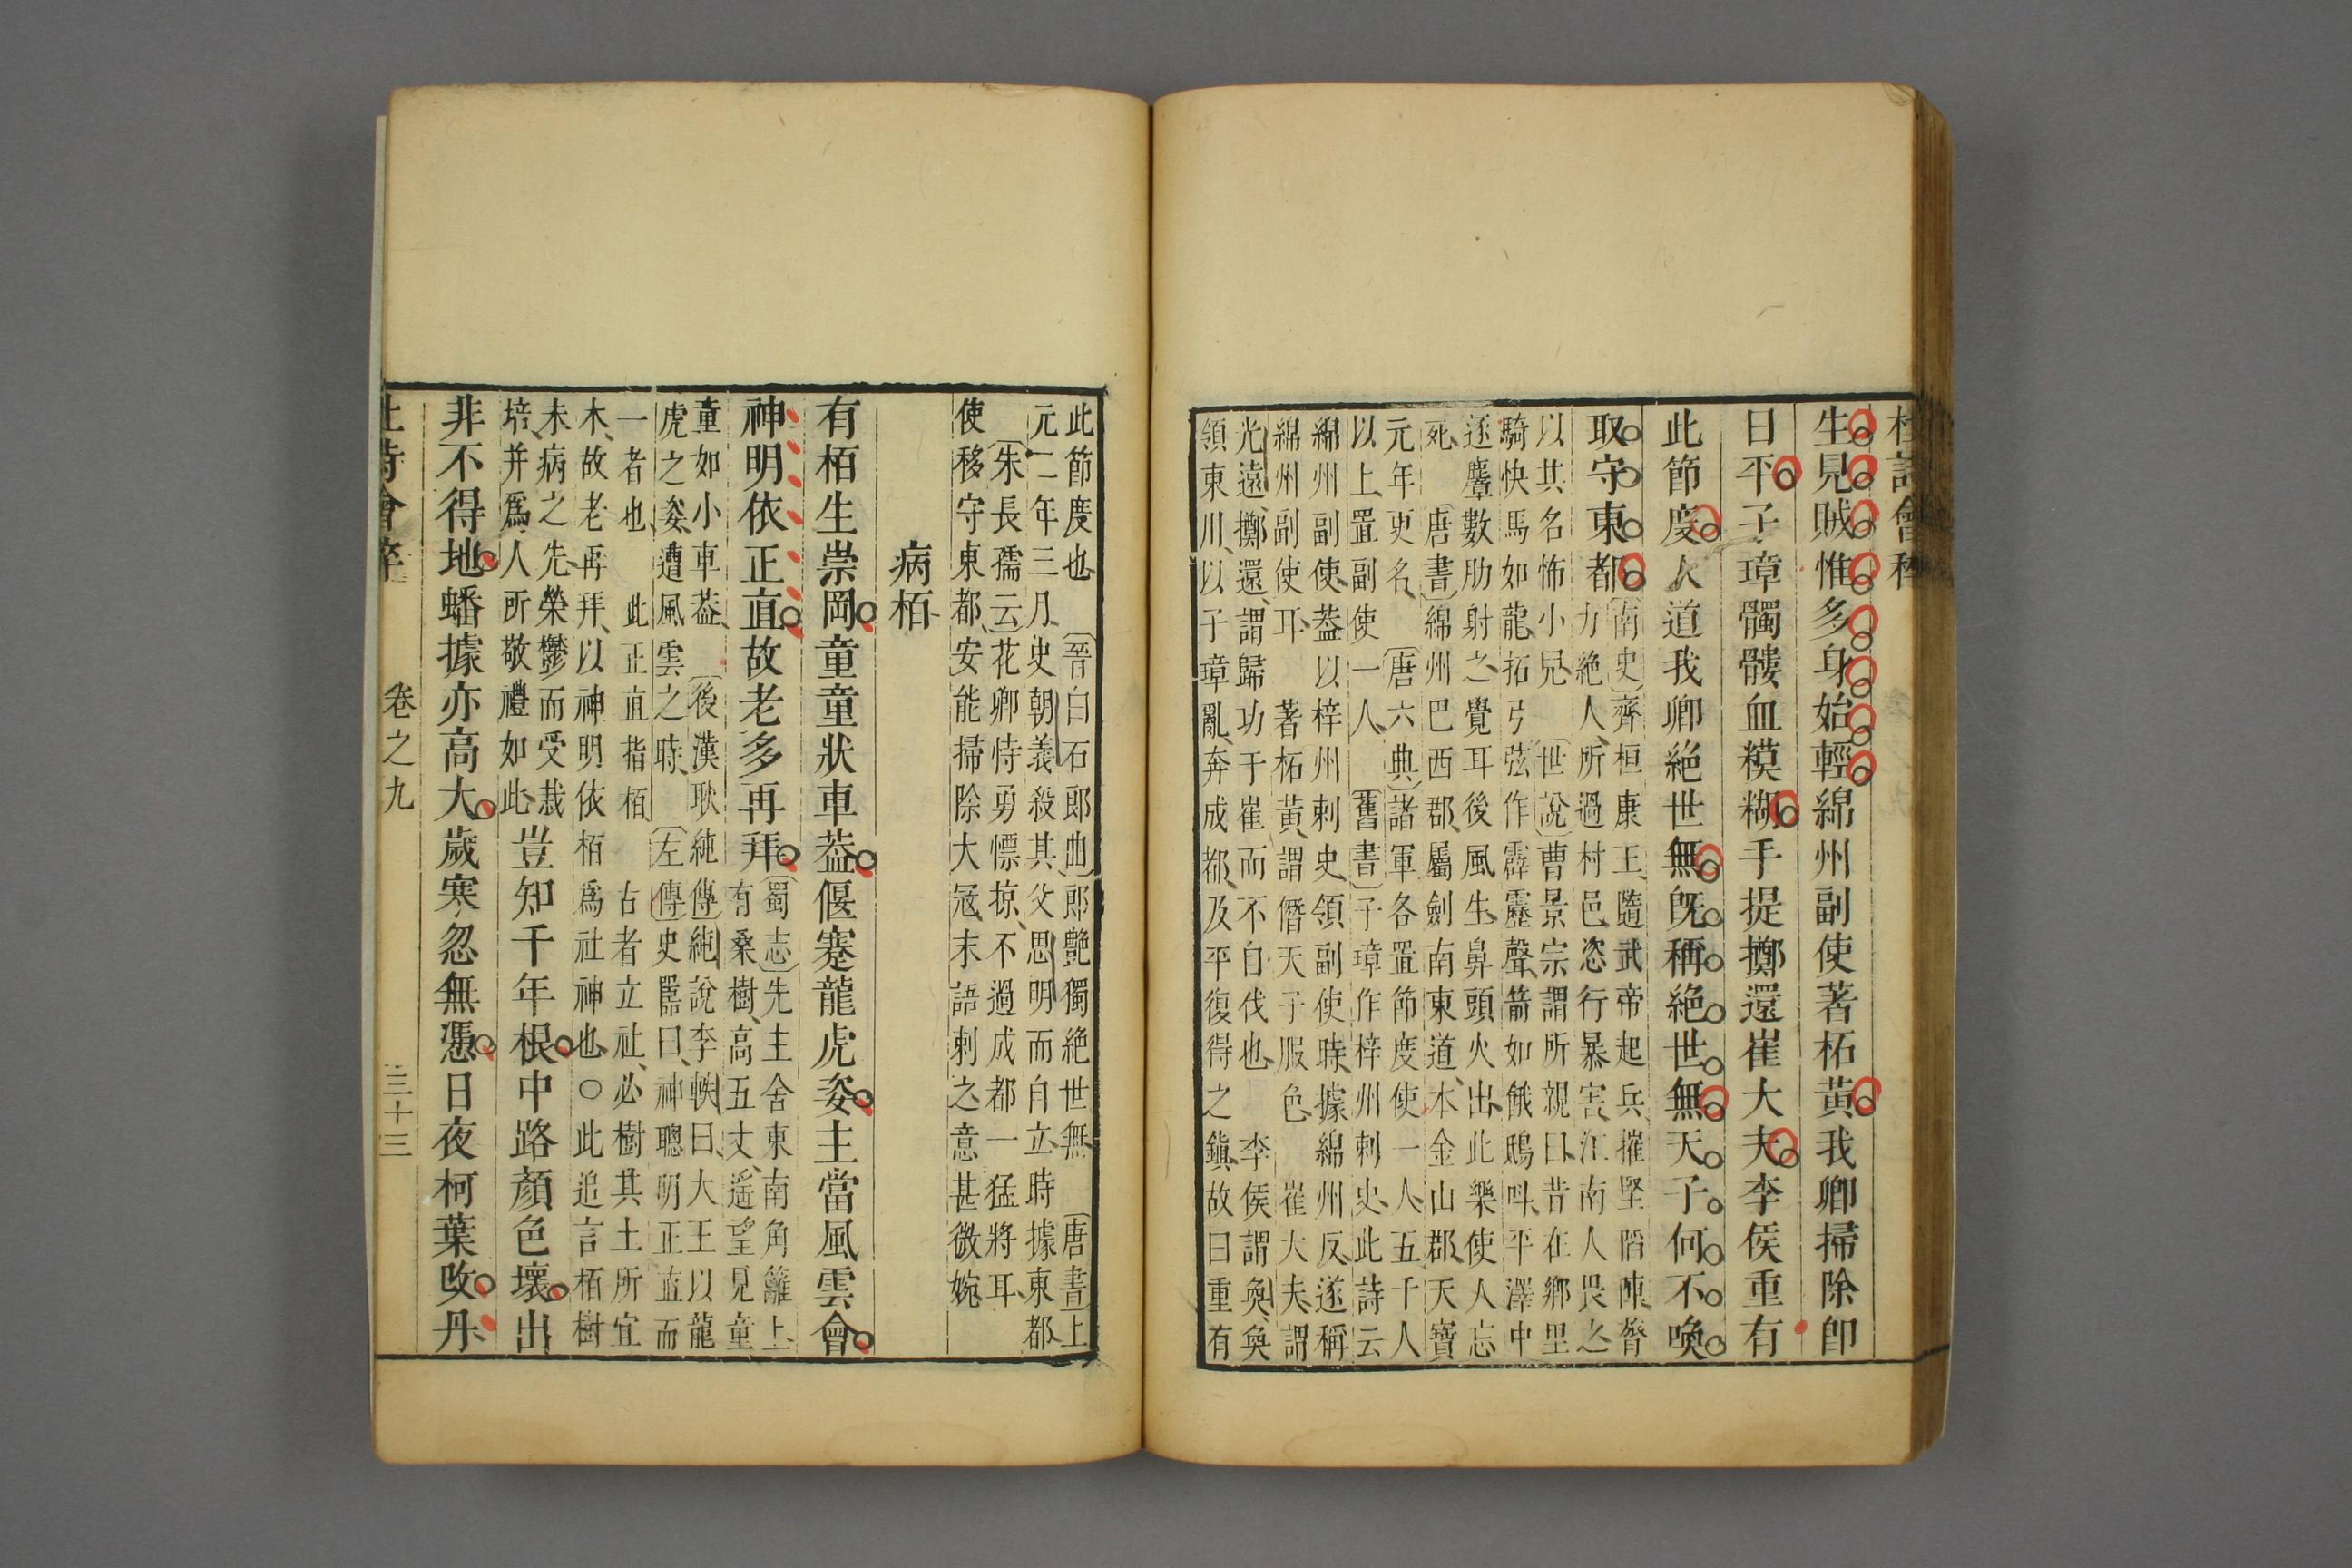 生見賊惟多身始輕綿州副使著柘黃我卿掃除卽
日平子璋髑髏血糢糊手提擲還崔大夫李侯重有
此節度人道我卿絕世無旣稱絕世無天子何不喚
取守東都
〔南史〕齊桓康王隨武帝起兵摧堅陷陣膂
力絕人所過村邑恣行暴害江南人畏之
以其名怖小兒 〔世說〕曹景宗謂所親曰昔在鄉里
騎快馬如龍拓弓弦作霹靂聲箭如餓鴟呌平澤中
逐麞數肋射之覺耳後風生鼻頭火出此樂使人忘
死 〔唐書〕綿州巴西郡屬劍南東道本金山郡天寶
元年更名 〔唐六典〕諸軍各置節度使一人五千人
以上置副使一人 〔舊書〕子璋作梓州刺史此詩云
綿州副使葢以梓州刺史領副使時據綿州反遂稱
綿州副使耳 著柘黃謂僭天子服色 崔大夫謂
光遠擲還謂歸功于崔而不自伐也 李侯謂奐奐
領東川以子璋亂奔成都及平復得之鎮故曰重有
此節度也 〔晉白石郎曲〕郎艷獨絕世無 〔唐書〕上
元二年三月史朝義殺其父思明而自立時據東都
〔朱長孺云〕花卿恃勇慓掠不過成都一猛將耳
使移守東都安能掃除大冦末語刺之意甚微婉
病栢
有栢生崇岡童童狀車葢偃蹇龍虎姿主當風雲會
神明依正直故老多再拜
〔蜀志〕先主舍東南角籬上
有桑樹高五丈遥望見童
童如小車葢 〔後漢耿純傳〕純說李軼曰大王以龍
虎之姿遭風雲之時 〔左傳〕史嚚曰神聰明正直而
一者也 此正直指栢 古者立社必樹其土所宜
木故老再拜以神明依栢爲社神也○此追言栢樹
未病之先榮鬱而受栽
培并爲人所敬禮如此
豈知千年根中路顏色壞出
非不得地蟠據亦高大歲寒忽無憑日夜柯葉改丹
卷之九 三十三